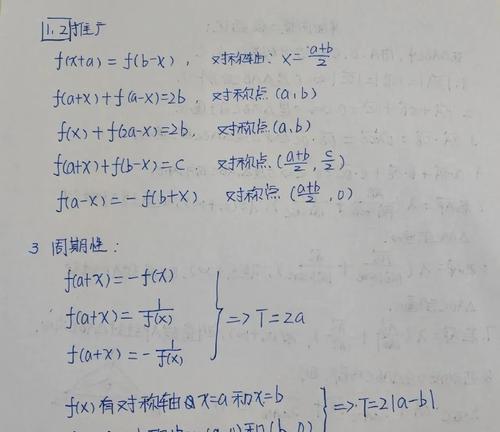 1、2推广
f(x+a)=f(b-x), 对称轴: x=\frac{a+b}{2}
f(a+x)+f(a-x)=2b, 对称点(a,b)
f(x)+f(2a-x)=2b, 对称点(a,b)
f(a+x)+f(b-x)=c, 对称点(\frac{a+b}{2}, \frac{c}{2})
f(a-x)=-f(b+x) 对称点(\frac{a+b}{2},0)
3 周期性:
f(a+x)=-f(x)
f(a+x)=\frac{1}{f(x)}
f(a+x)=-\frac{1}{f(x)}
=>T=2a
f(x)有对称轴 x=a和x=b
=>T=2|a-b|